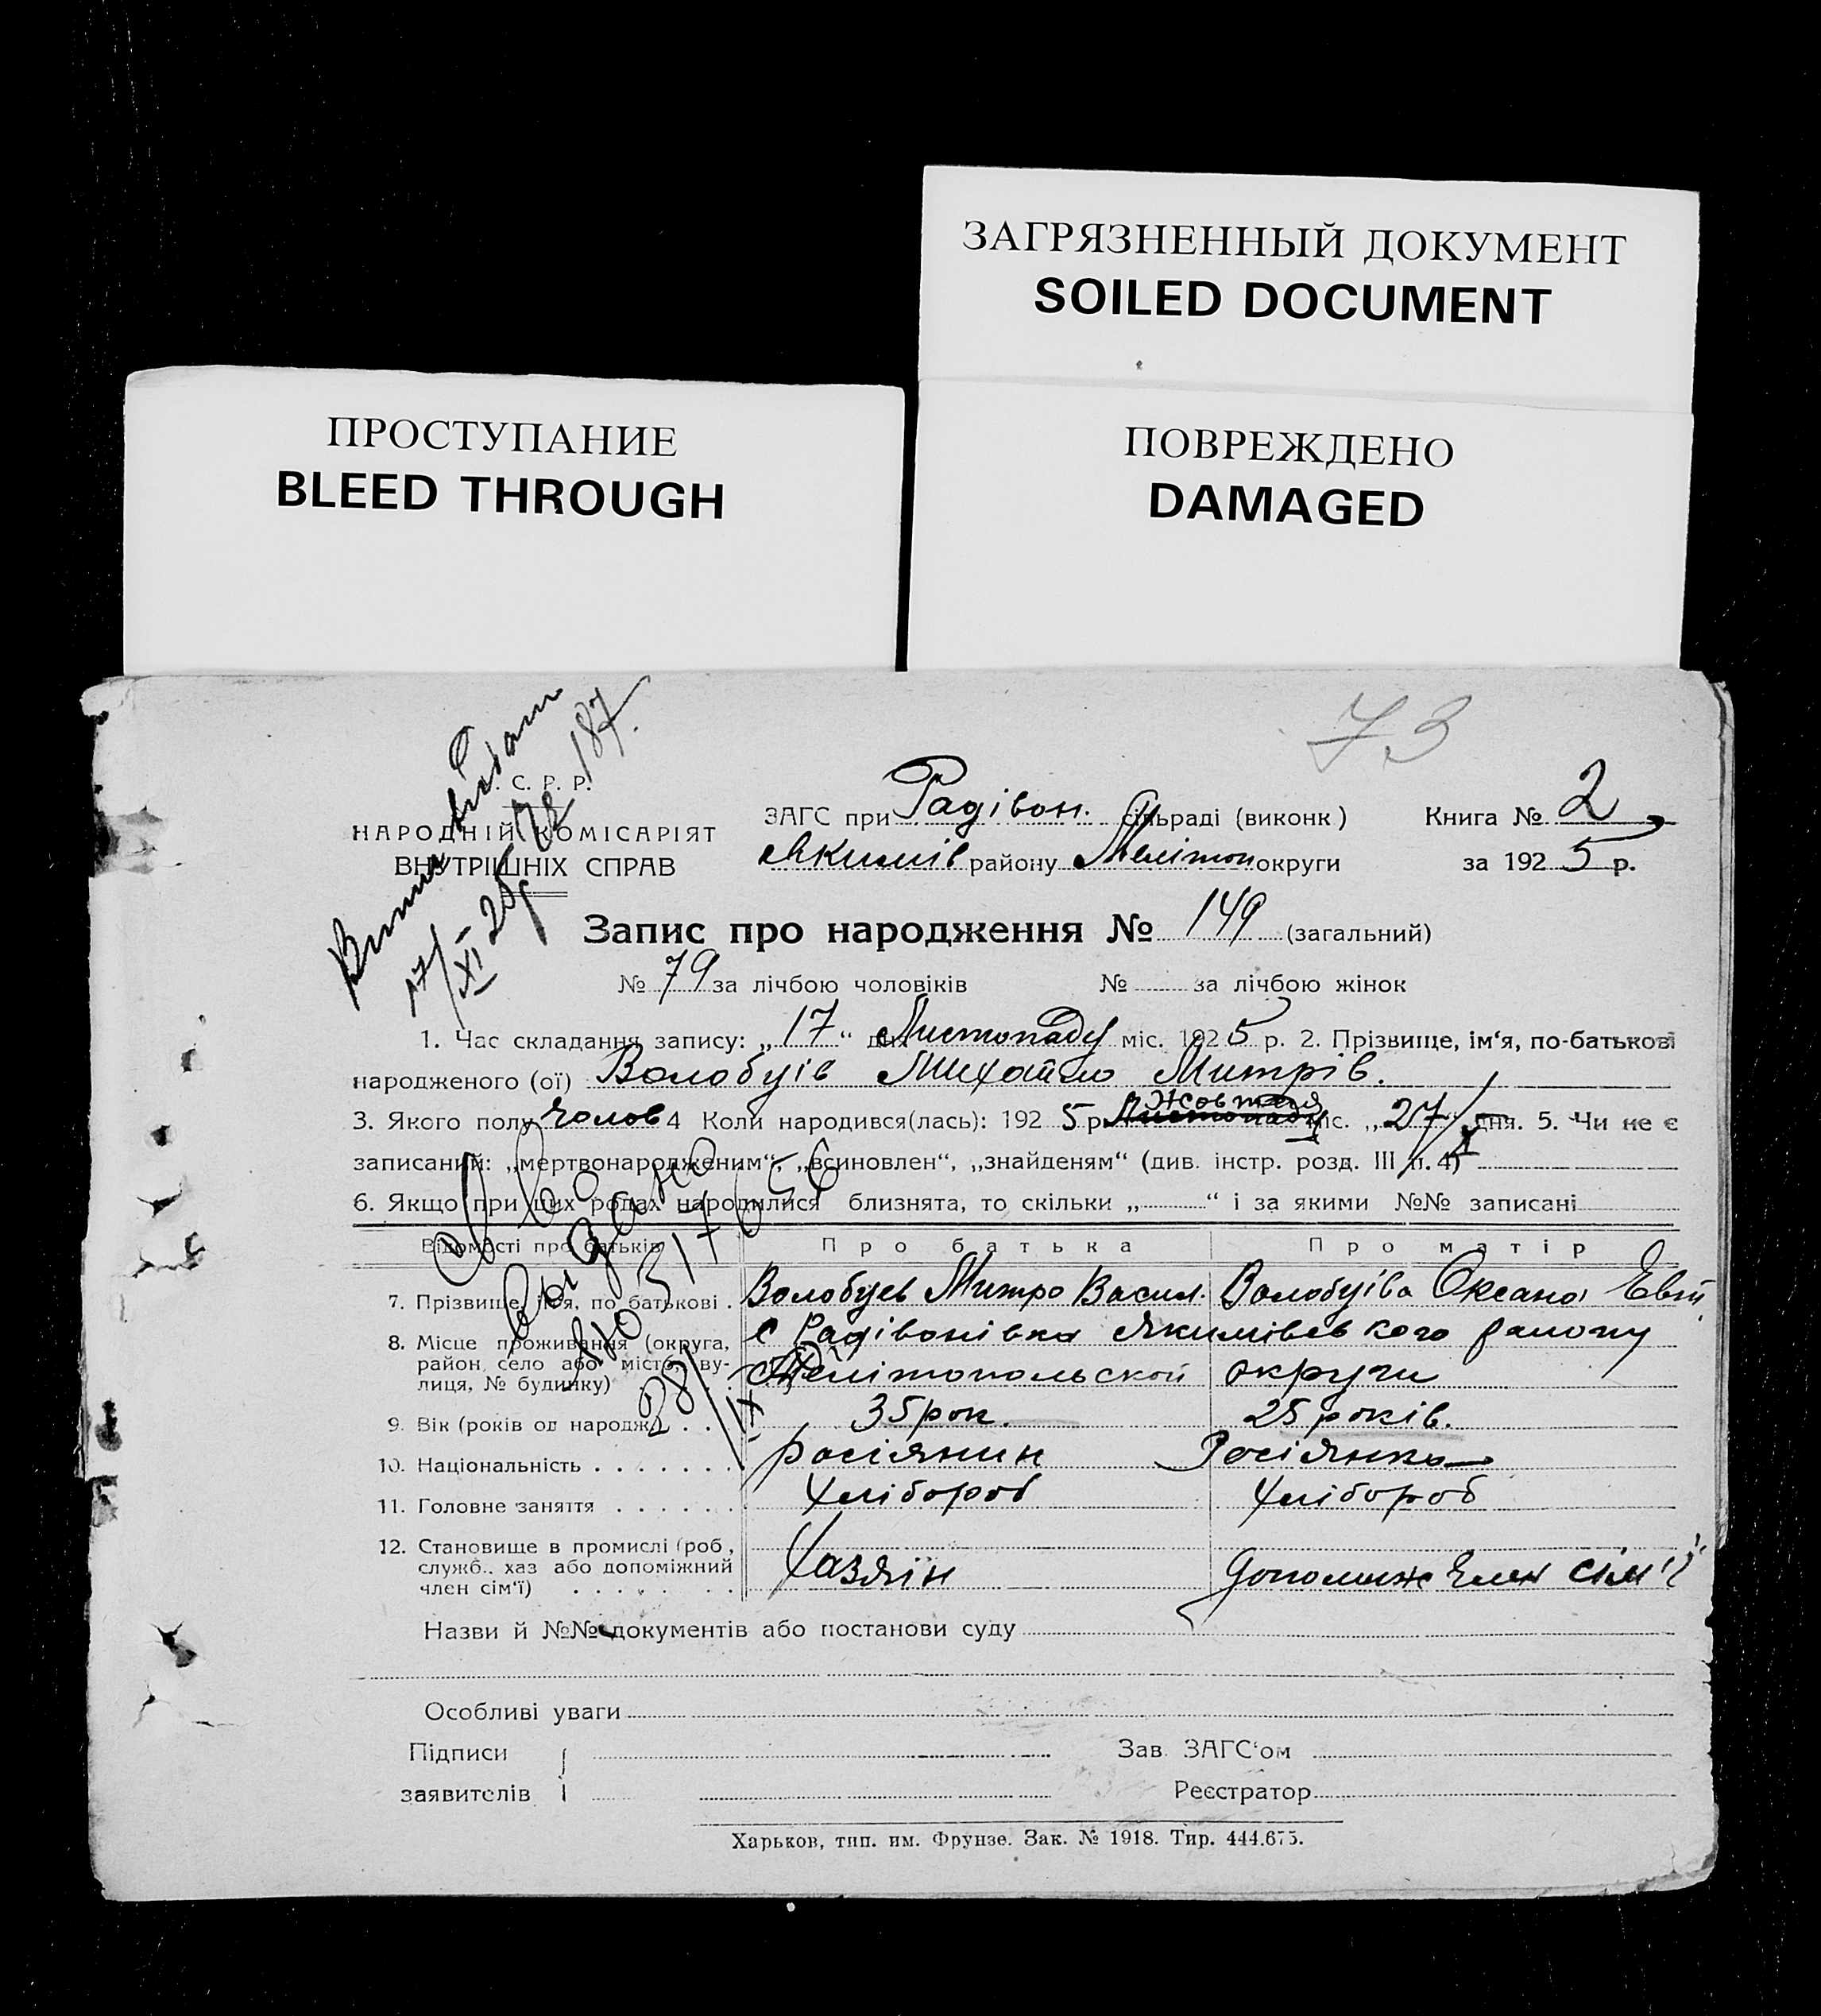 ЗАГРЯЗНЕННЫЙ ДОКУМЕНТ
SOILED DOCUMENT
ПРОСТУПАНИЕ
BLEED THROUGH
ПОВРЕЖДЕНО
DAMAGED
73
187.
С. Р. Р.
НАРОДНІЙ КОМІСАРІЯТ
ВНУТРІШНІХ СПРАВ
17/XI-25
ЗАГС при Радівон. сільраді (виконк)
Якимів району Мелітоп округи
Книга № 2
за 1925 р.
Запис про народження № 149 (загальний)
№ 79 за лічбою чоловіків № за лічбою жінок
1. Час складання запису: „17“ дня Листопаду міс. 1925 р. 2. Прізвище, ім'я, по-батькові
народженого (ої) Волобуів Михайло Митрів.
3. Якого полу чолов 4 Коли народився(лась): 1925 р Жовтня міс. „27/X дня. 5. Чи не є
записаний: „мертвонародженим“, „всиновлен“, „знайденям“ (див. інстр. розд. III п. 4)
6. Якщо при цих родах народилися близнята, то скільки „ “ і за якими №№ записані
Відомості про батьків Про батька Про матір
7. Прізвище, ім'я, по батькові . Волобуев Митро Васил. Волобуіва Оксана Евт
8. Місце проживання (округа, с Радівонівка Якимівського району
район, село або місто, ву-
лиця, № будинку) Мелітопольской округи
9. Вік (років од народж.) . . 35 рок. 25 років.
10. Національність . . . . . . . росіянин Росіянка
11. Головне заняття . . . . . . Хлібороб Хлібороб
12. Становище в промислі (роб,
служб., хаз або допоміжний
член сім'ї) . . . . . . Хазяїн допомиж член сім'ї
Назви й №№ документів або постанови суду
Особливі уваги
Підписи Зав. ЗАГС'ом
заявителів Реєстратор
Харьков, тип. им. Фрунзе. Зак. № 1918. Тир. 444.675.